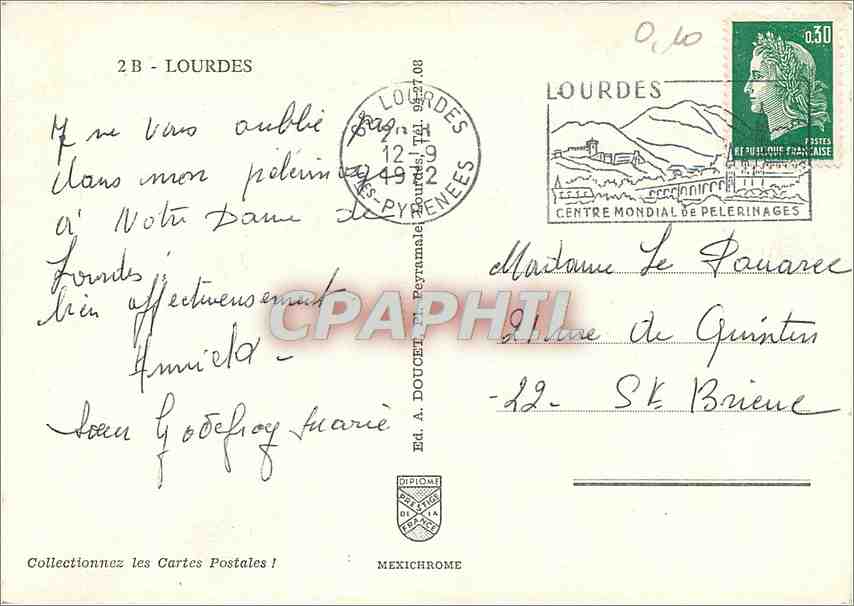 0,10
0,30
POSTES
REPUBLIQUE FRANÇAISE
2 B - LOURDES
LOURDES
12-9
1972
PYRENEES
LOURDES
CENTRE MONDIAL de PELERINAGES
Je ne vous oublie pas
dans mon pélerinage
à Notre Dame de
Lourdes.
bien affectueusement
Soeur Godefroy Marie
Madame Le
21 rue de Quintin
-22- St Brieuc
Ed. A. DOUCET, Pl. Peyramale, Lourdes, Tél. 94.27.08
CPAPHIL
DIPLOME
PRESTIGE
DE LA
FRANCE
Collectionnez les Cartes Postales !
MEXICHROME